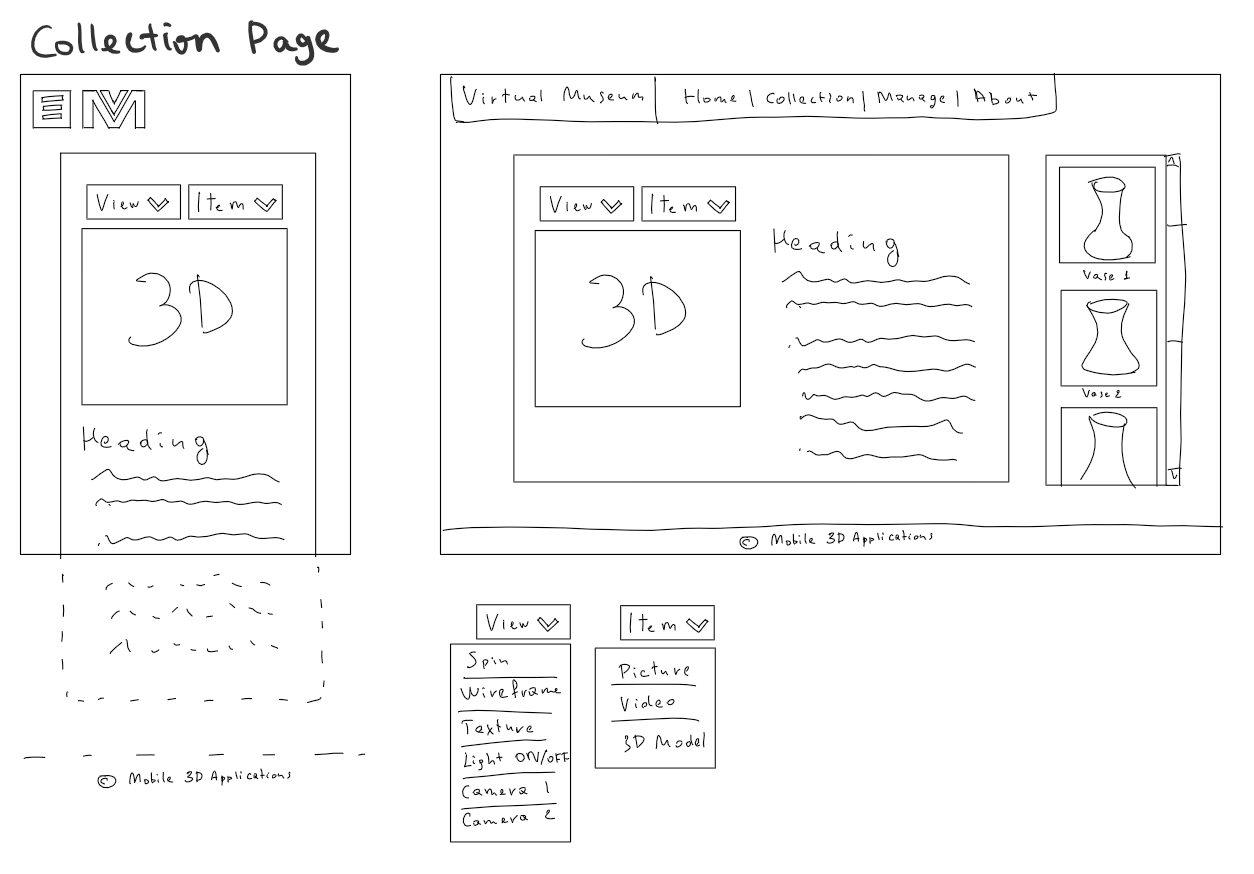 Collection Page
M
View Item
3D
Heading
© Mobile 3D Applications
Virtual Museum Home | Collection | Manage | About
View Item
3D
Heading
Vase 1
Vase 2
© Mobile 3D Applications
View
Spin
Wireframe
Texture
Light ON/OFF
Camera 1
Camera 2
Item
Picture
Video
3D Model